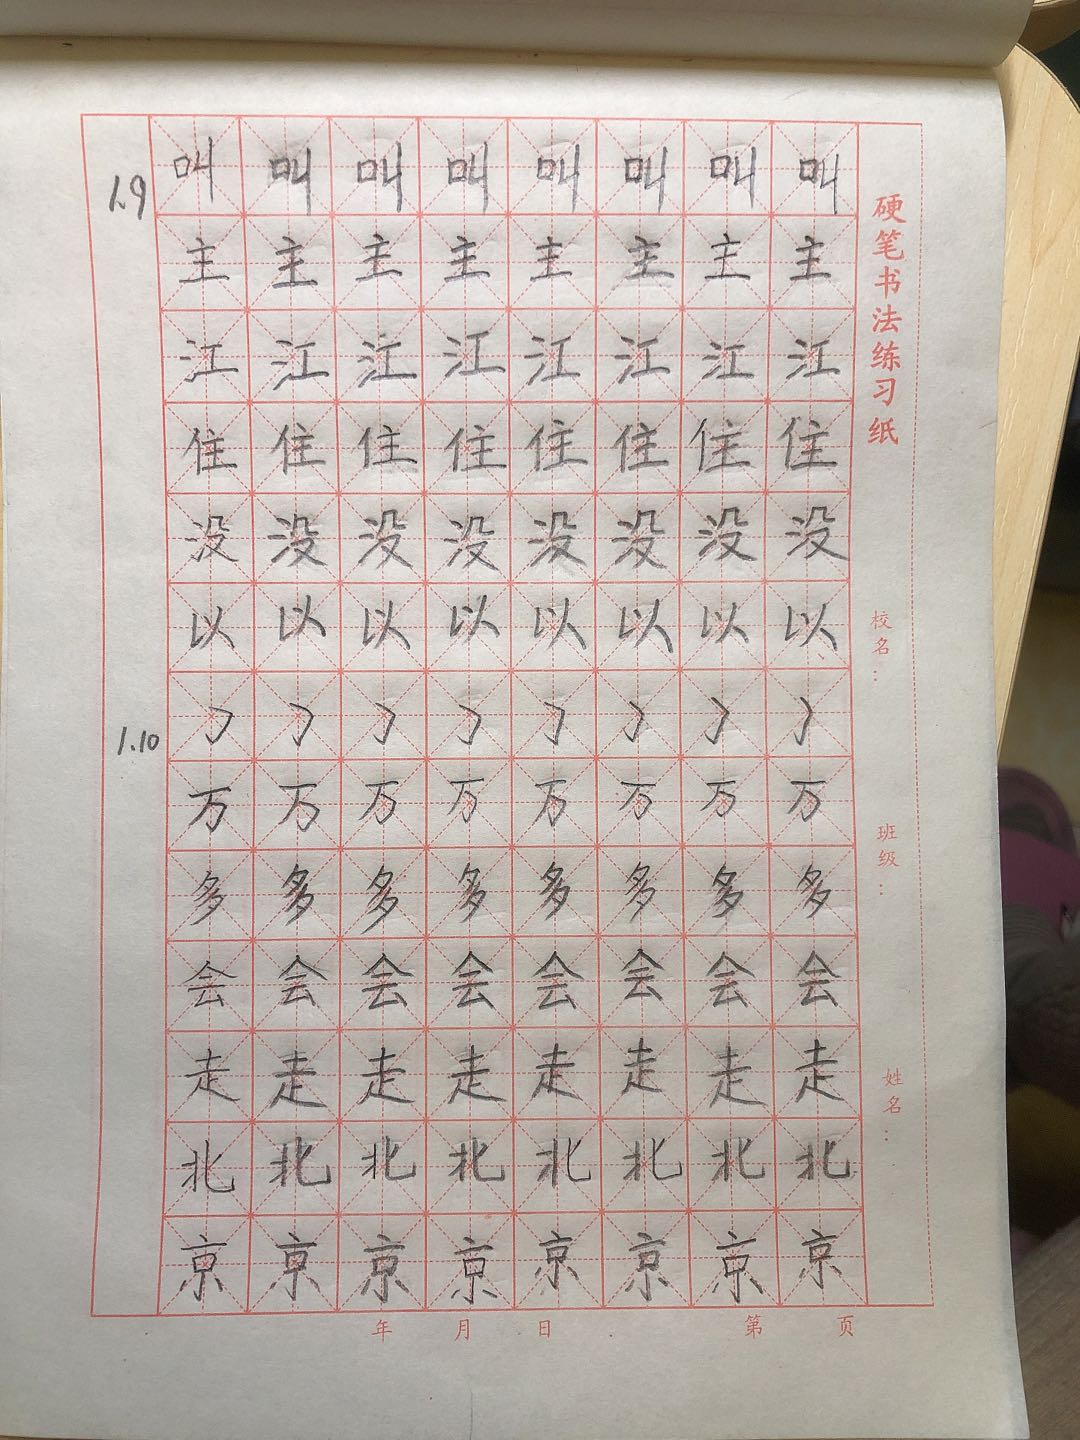 1.9
叫叫叫叫叫叫叫叫
主主主主主主主主
江江江江江江江江
住住住住住住住住
没没没没没没没没
以以以以以以以以
1.10
㇆㇆㇆㇆㇆㇆㇆㇆
万万万万万万万万
多多多多多多多多
会会会会会会会会
走走走走走走走走
北北北北北北北北
京京京京京京京京
硬笔书法练习纸
校名：
班级：
姓名：
年 月 日 第 页